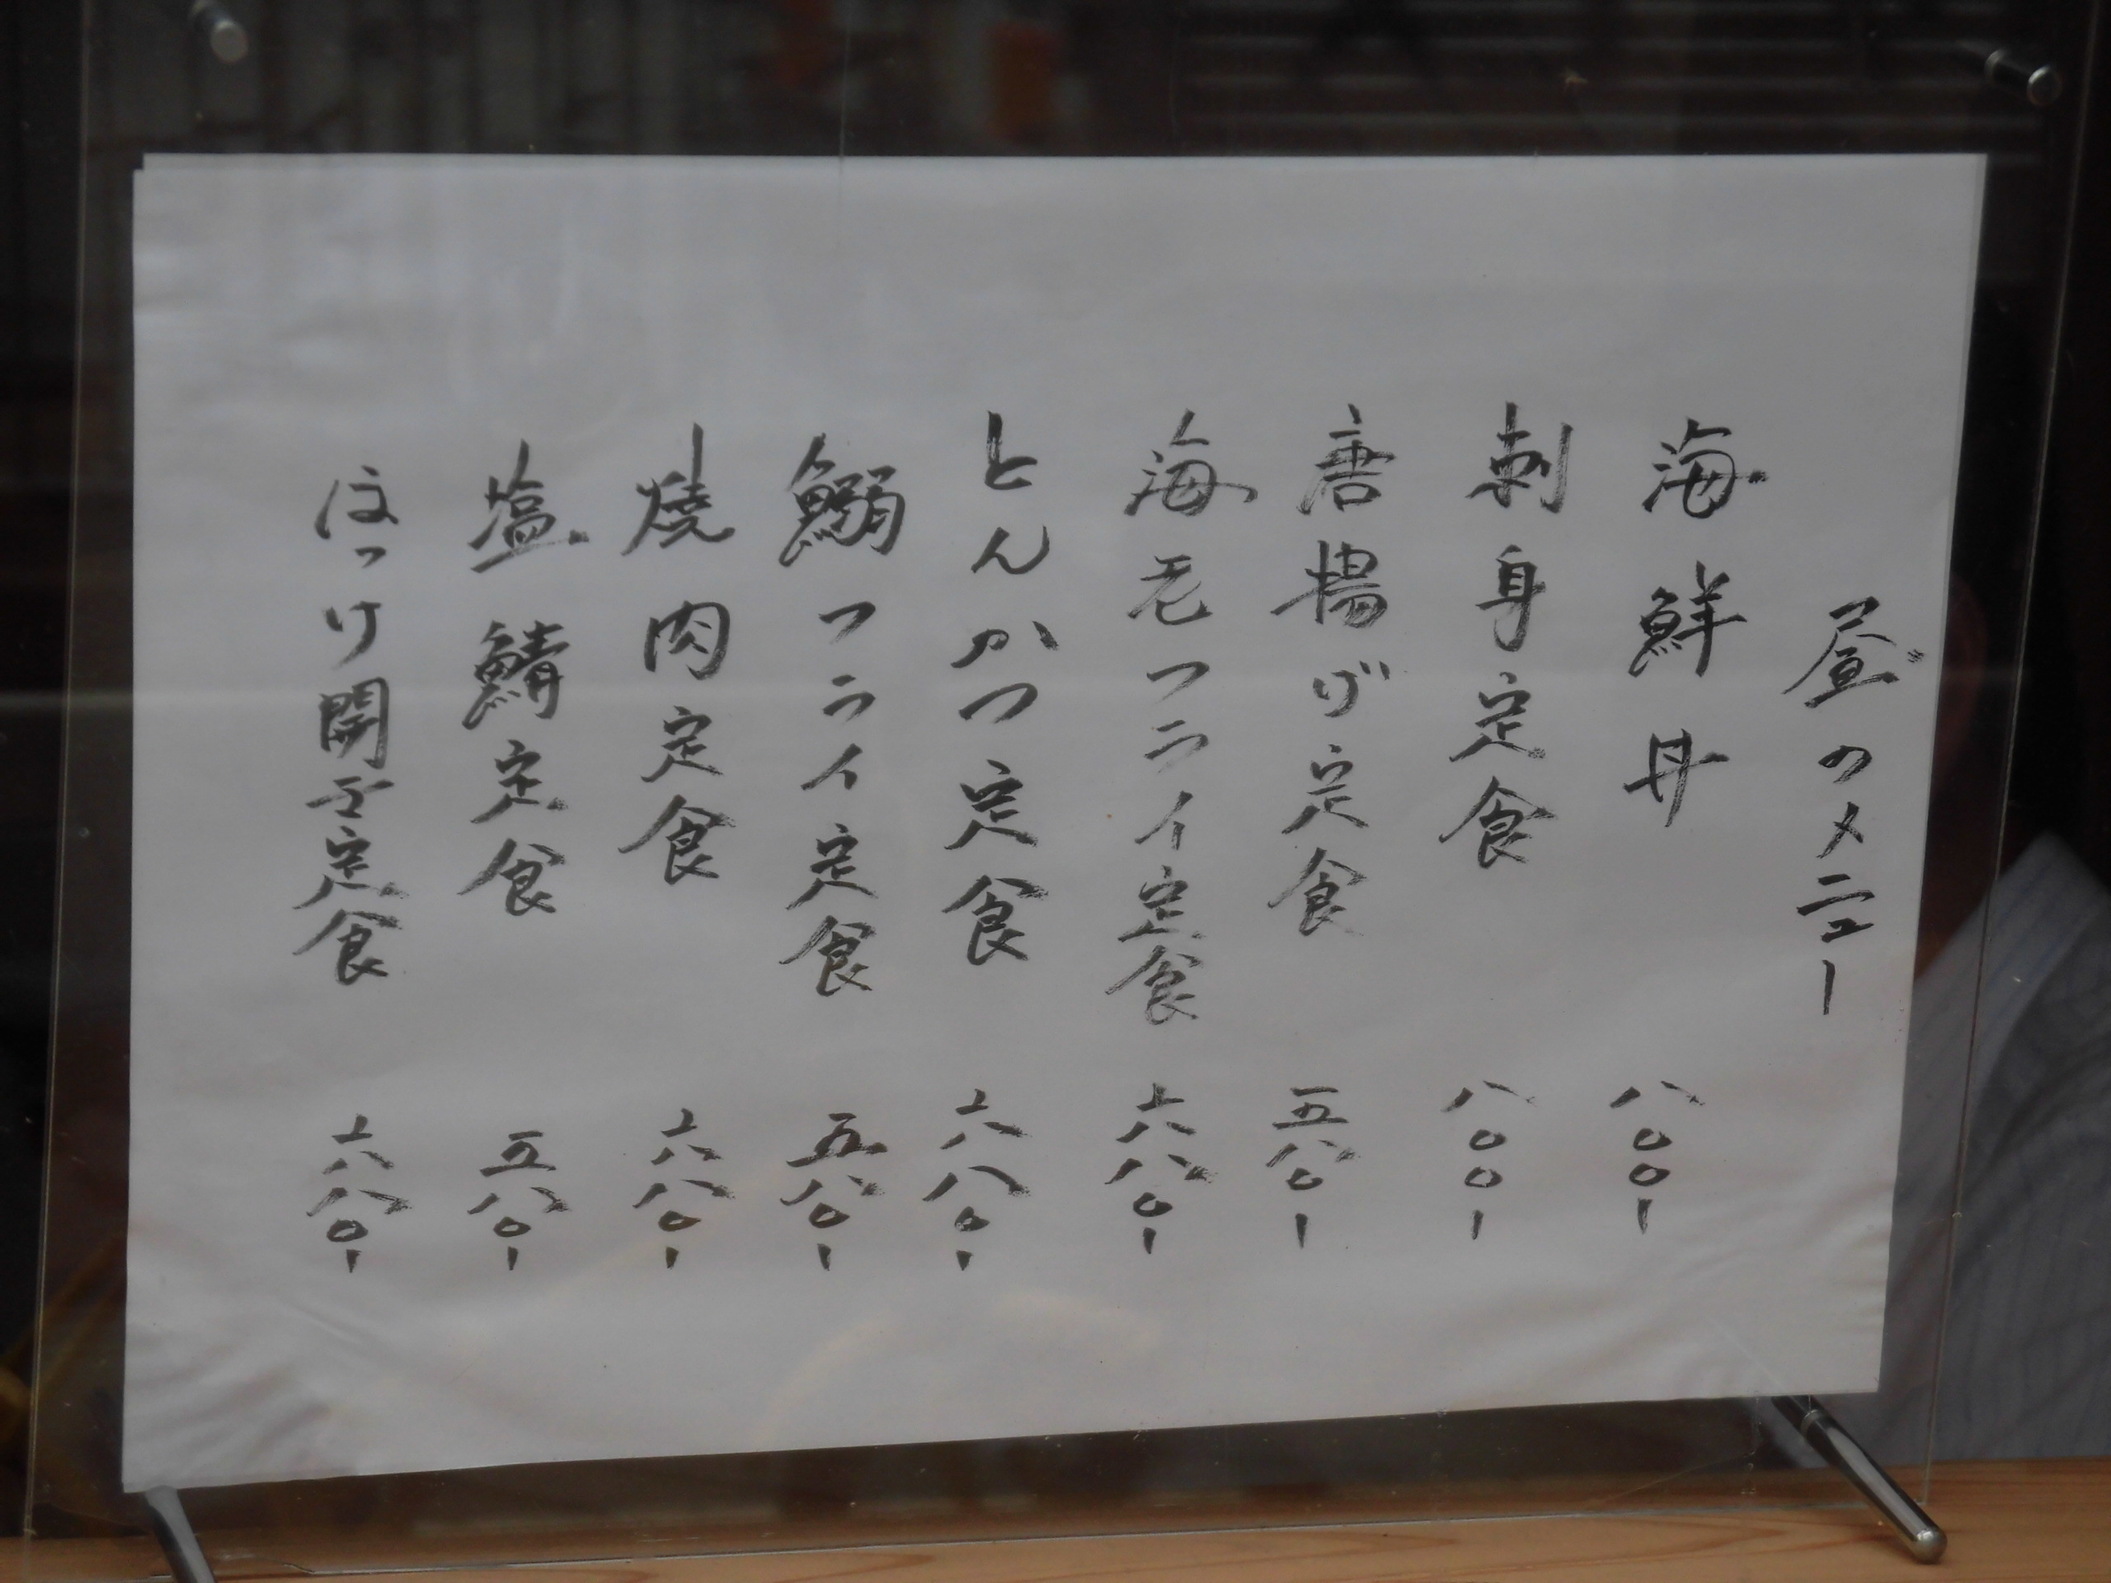 昼のメニュー
海鮮丼 八〇〇-
刺身定食 八〇〇-
唐揚げ定食 五八〇-
海老フライ定食 六八〇-
とんかつ定食 六八〇-
鰯フライ定食 五八〇-
焼肉定食 六八〇-
塩鯖定食 五八〇-
ほっけ開き定食 六八〇-